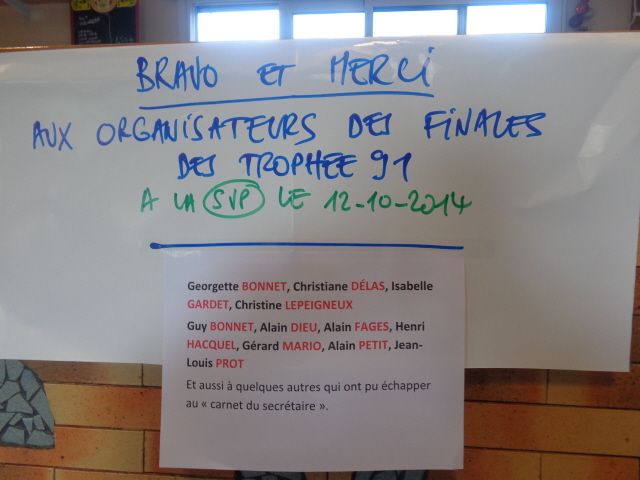 BRAVO ET MERCI
AUX ORGANISATEURS DES FINALES
DES TROPHEE 91
A LA SVP LE 12-10-2014
Georgette BONNET, Christiane DÉLAS, Isabelle
GARDET, Christine LEPEIGNEUX
Guy BONNET, Alain DIEU, Alain FAGES, Henri
HACQUEL, Gérard MARIO, Alain PETIT, Jean-
Louis PROT
Et aussi à quelques autres qui ont pu échapper
au « carnet du secrétaire ».